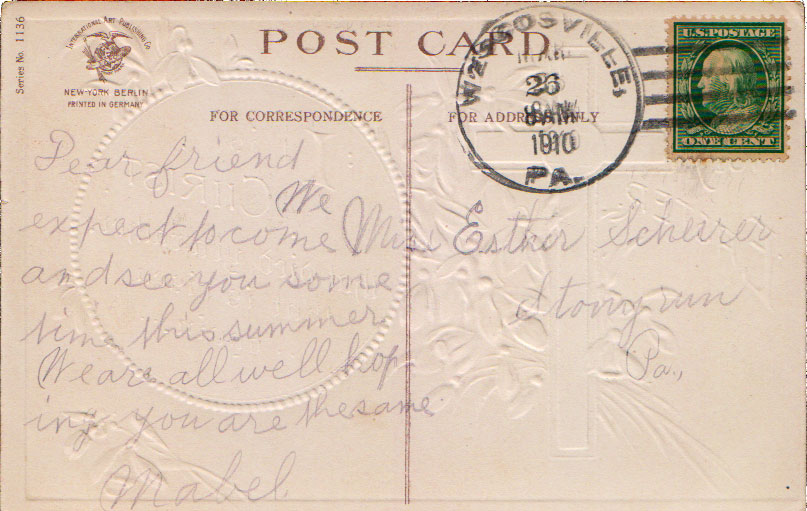 Series No. 1136
International Art Publishing Co
NEW-YORK BERLIN
PRINTED IN GERMANY
POST CARD
FOR CORRESPONDENCE
FOR ADDRESS ONLY
WESCOSVILLE,
MAR
26
8 AM
1910
PA.
U.S. POSTAGE
ONE CENT
Dear friend
We
expect to come
and see you some
time this summer
We are all well hop
ing you are the same
Mabel
Miss Esther Scheirer
Stonyrun
Pa.,